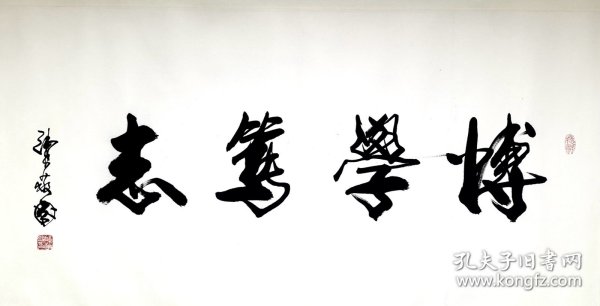 博學篤志
孔夫子旧书网
www.kongfz.com